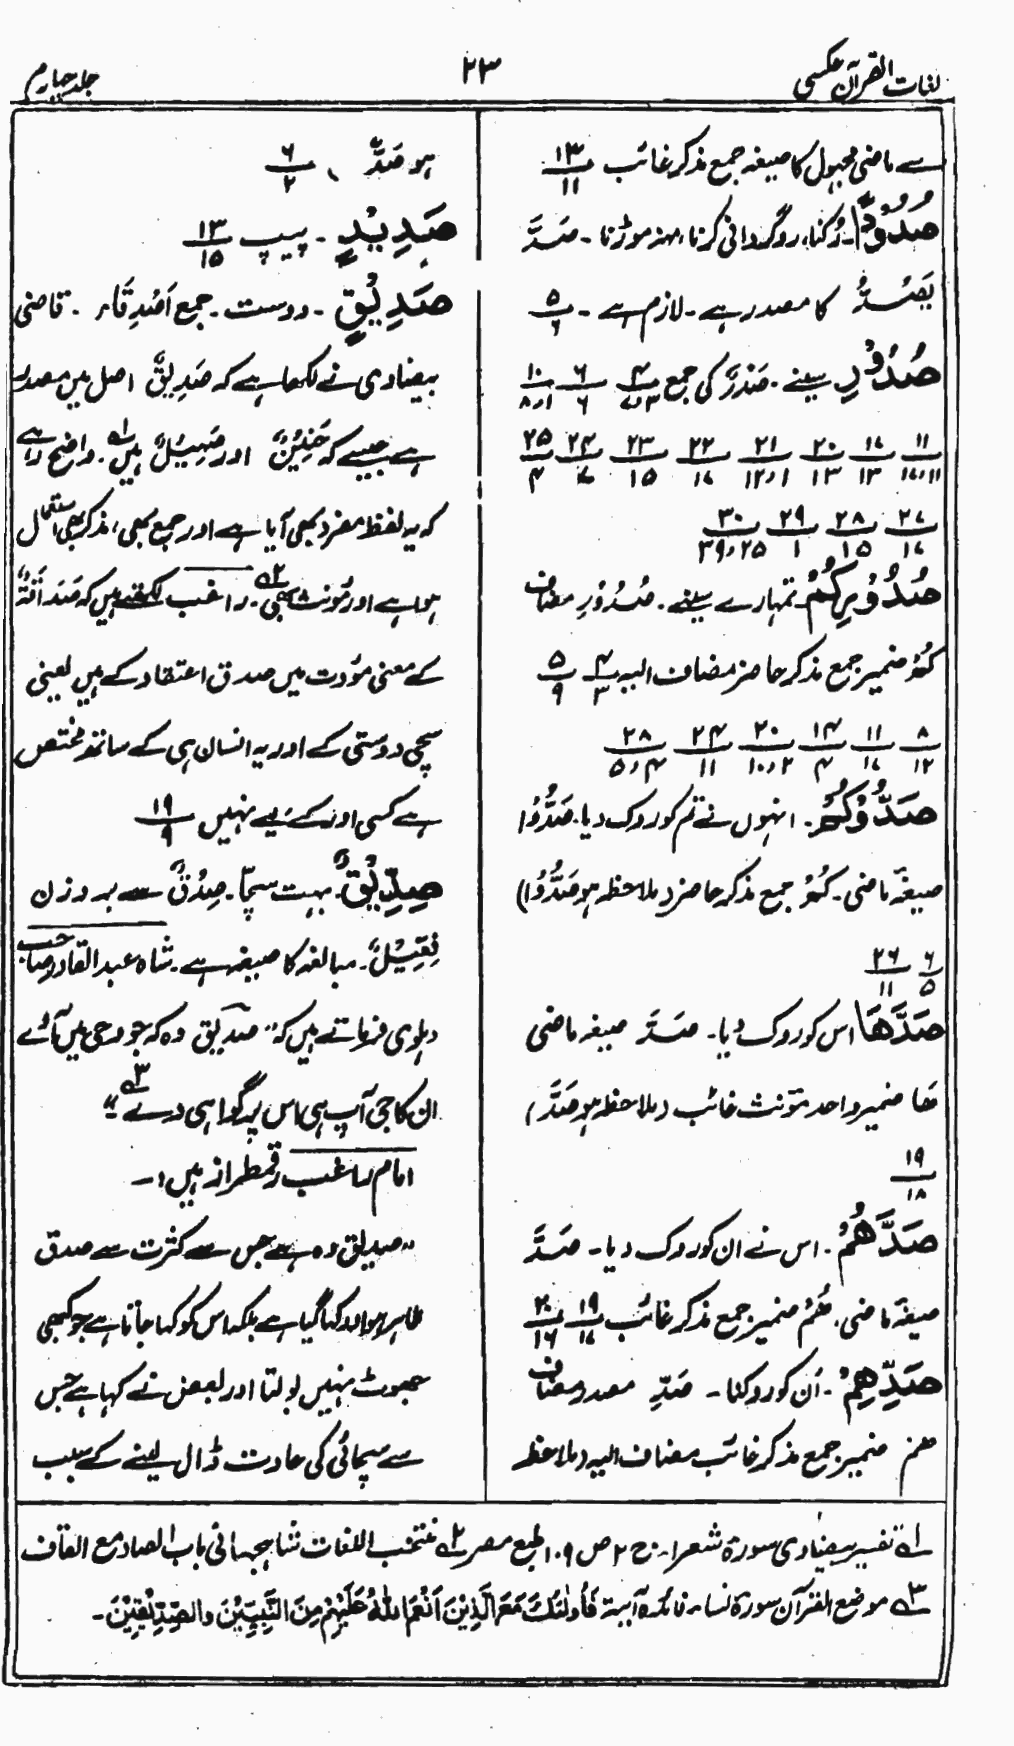 لغات القرآن عکسی
۲۳
جلد چہارم
سے ماضی مجہول کا صیغہ جمع مذکر غائب ۱۳/۱۱
صُدُوْدًا۔ رُکنا، روگردانی کرنا، منہ موڑنا۔ صَدَّ
یَصُدُّ کا مصدر ہے۔ لازم ہے۔ ۵/۶
صُدُوْرِ سینے۔ صَدْرٌ کی جمع ۴/۳،۷ ۶/۶ ۱۰/۱،۸
۱۱/۱۱،۱۷ ۱۷/۱۳ ۲۰/۱۳ ۲۱/۱،۱۲ ۲۲/۱۷ ۲۳/۱۵ ۲۴/۷ ۲۵/۴
۲۷/۱۷ ۲۸/۱۵ ۲۹/۱ ۳۰/۲۵،۳۹
صُدُوْرِکُمْ۔ تمہارے سینے۔ صُدُوْرِ مضاف
کُمْ ضمیر جمع مذکر حاضر مضاف الیہ ۴/۳ ۵/۹
۸/۱۲ ۱۱/۱۷ ۱۴/۴ ۲۰/۲،۱۰ ۲۴/۱۱ ۲۸/۴،۵
صَدُّوْکُمْ۔ انہوں نے تم کو روک دیا۔ صَدُّوْا
صیغہٴ ماضی۔ کُمْ جمع مذکر حاضر (ملاحظہ ہو صَدُّوْا)
۶/۵ ۲۶/۱۱
صَدَّھَا اس کو روک دیا۔ صَدَّ صیغہ ماضی
ھَا ضمیر واحد مؤنث غائب (ملاحظہ ہو صَدَّ)
۱۹/۱۸
صَدَّھُمْ۔ اس نے ان کو روک دیا۔ صَدَّ
صیغہٴ ماضی۔ ھُمْ ضمیر جمع مذکر غائب ۱۹/۱۷ ۲۰/۱۶
صَدِّھِمْ۔ اُن کو روکنا۔ صَدِّ مصدر مضاف
ھم ضمیر جمع مذکر غائب مضاف الیہ (ملاحظہ
ہو صَدٌّ ۶/۲
صَدِیْدٍ۔ پیپ ۱۳/۱۵
صَدِیْقٍ۔ دوست۔ جمع اَصْدِقَاء۔ قاضی
بیضاوی نے لکھا ہے کہ صَدِیْقٌ اصل میں مصدر
ہے جیسے کہ حَنِیْنٌ اور صَہِیْلٌ ہیں ۱؎۔ واضح رہے
کہ یہ لفظ مفرد بھی آیا ہے اور جمع بھی، مذکر بھی استعمال
ہوا ہے اور مؤنث بھی ۲؎۔ راغب لکھتے ہیں کہ صَدَاقَۃٌ
کے معنی مؤدت میں صدق اعتقاد کے ہیں یعنی
سچی دوستی کے اور یہ انسان ہی کے ساتھ مختص
ہے کسی اور کے لیے نہیں ۱۹/۹
صِدِّیْقٌ۔ بہت سچا۔ صِدْقٌ سے بر وزن
فِعِّیْلٌ۔ مبالغہ کا صیغہ ہے۔ شاہ عبدالقادر صاحب
دہلوی فرماتے ہیں کہ "صدیق وہ کہ جو وحی میں آئے
ان کا جی آپ ہی اس پر گواہی دے ۳؎"
امام راغب رقمطراز ہیں:۔
"صدیق وہ ہے جس سے کثرت سے صدق
ظاہر ہو اور کہا گیا ہے بلکہ اس کو کہا جاتا ہے جو کبھی
جھوٹ نہیں بولتا اور بعض نے کہا ہے جس
سے سچائی کی عادت ڈال لینے کے سبب
۱؎ تفسیر بیضاوی سورۃ شعراء۔ ج ۲ ص ۱۰۹ طبع مصر ۲؎ منتخب اللغات شاہجہانی باب الصاد مع القاف
۳؎ موضح القرآن سورۃ نساء۔ فائدہ آیۃ فَاُولٰئِکَ مَعَ الَّذِیْنَ اَنْعَمَ اللہُ عَلَیْہِمْ مِنَ النَّبِیِّیْنَ وَالصِّدِّیْقِیْنَ۔